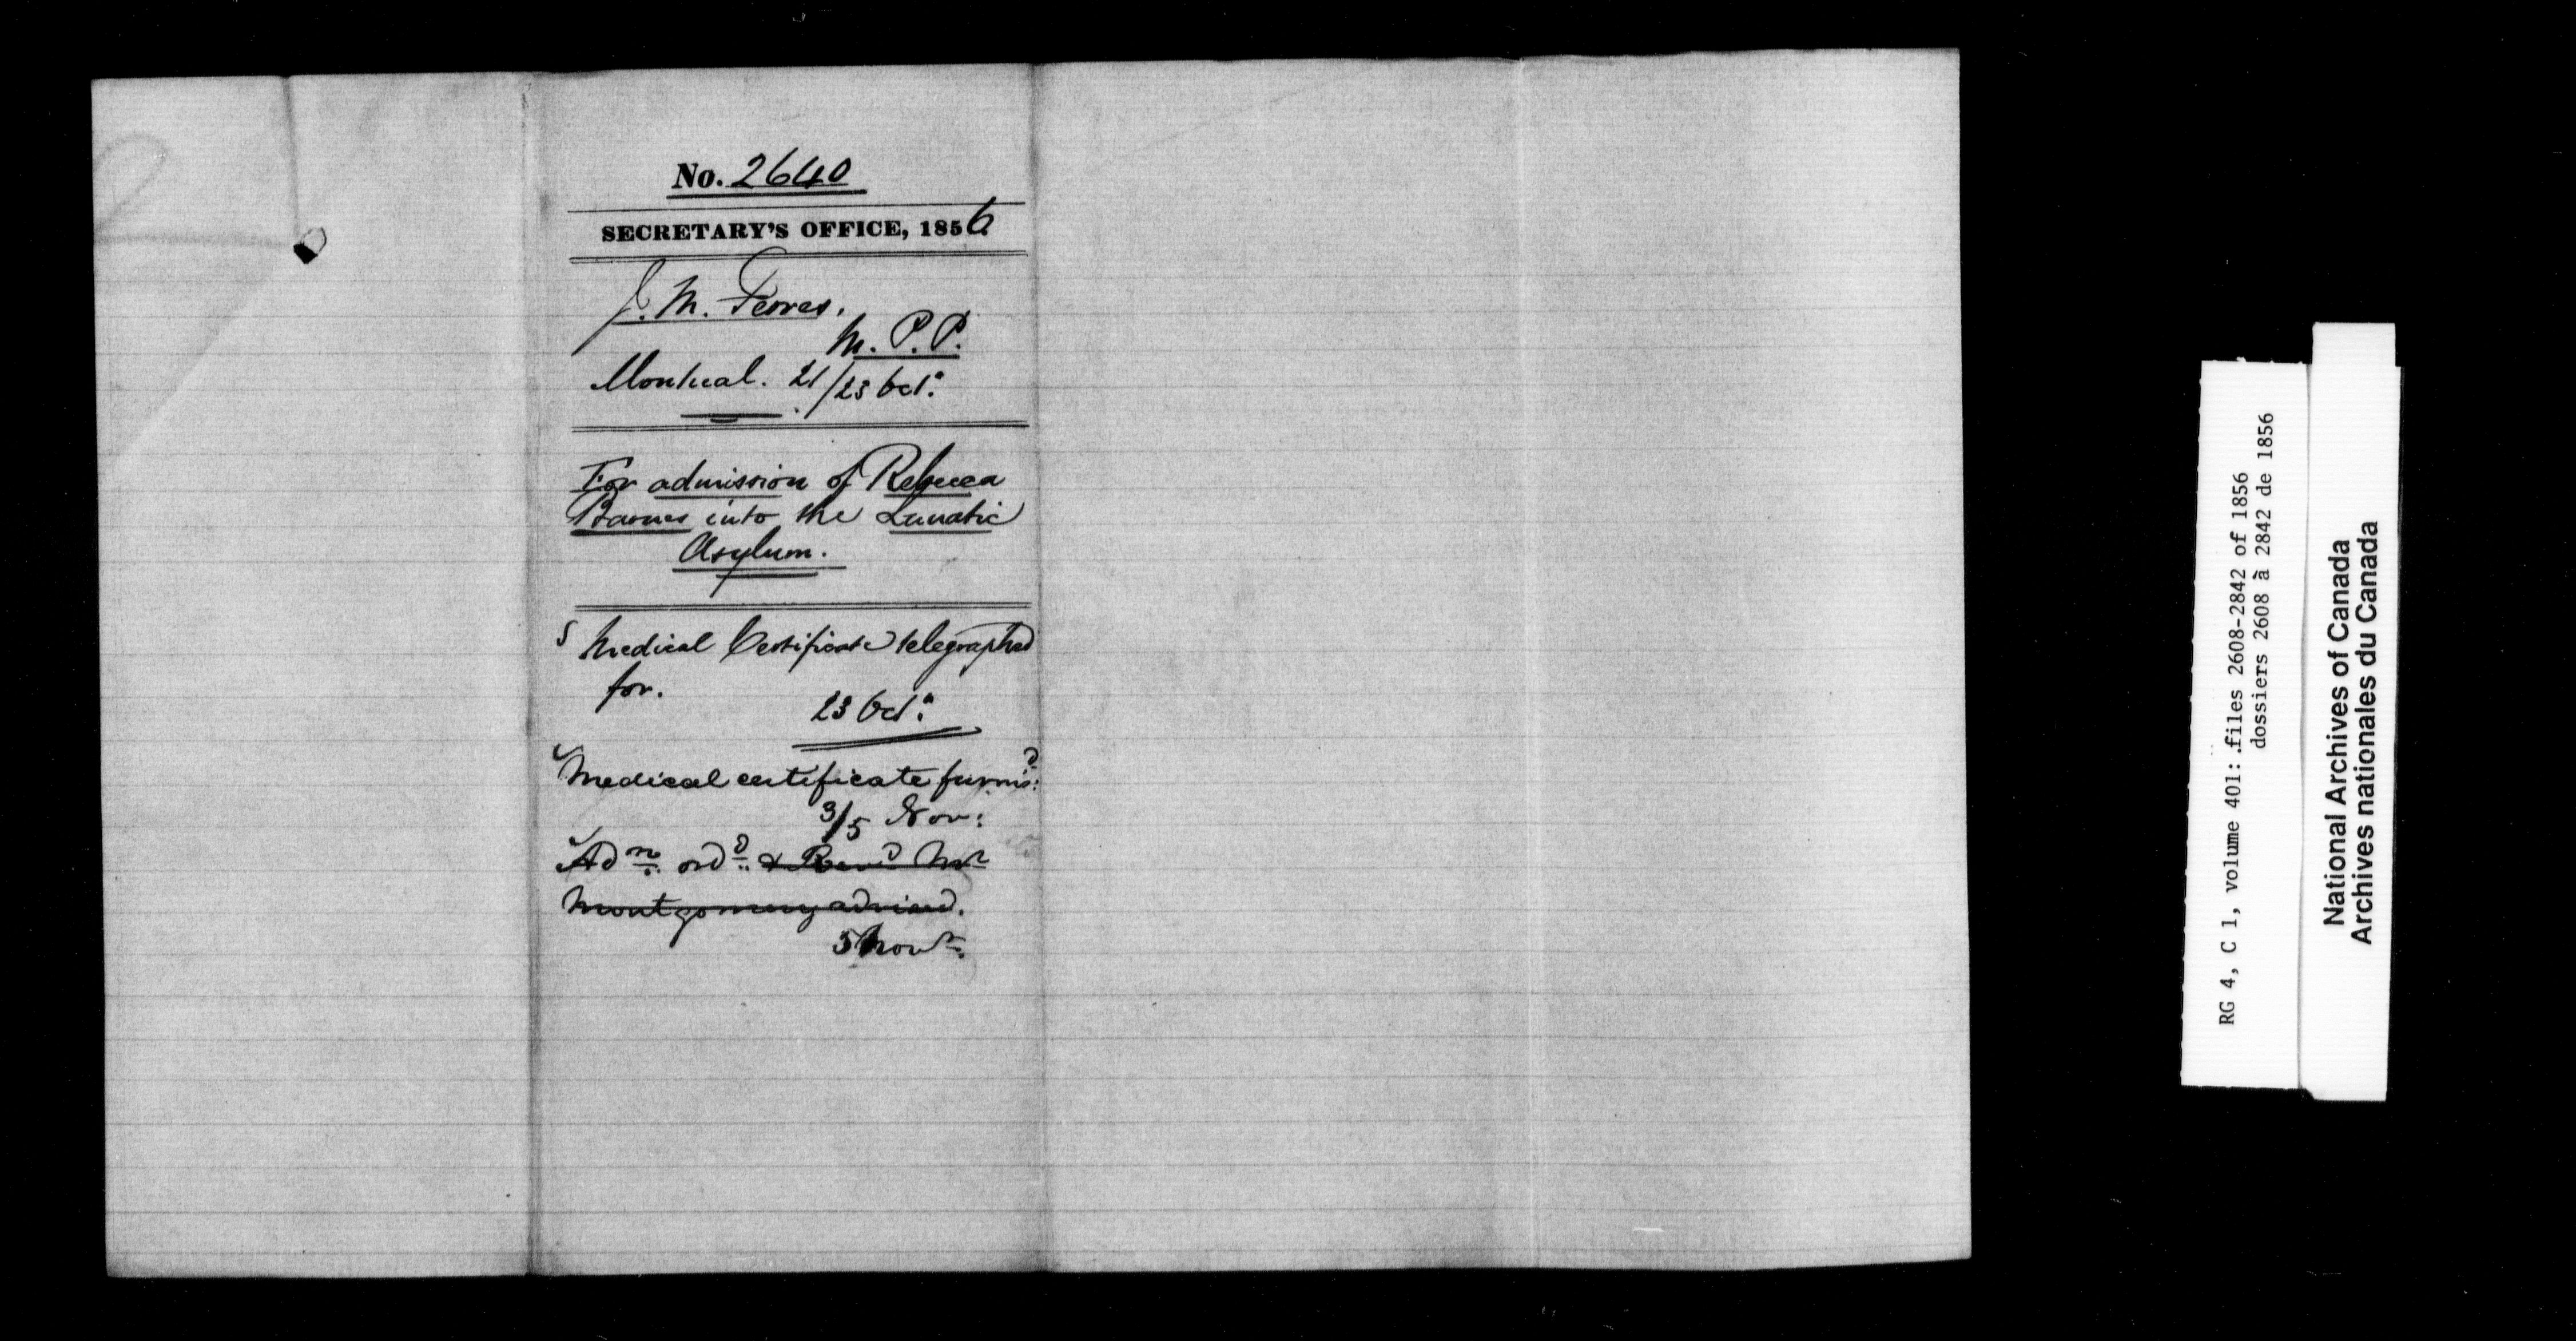 No. 2640
SECRETARY'S OFFICE, 1856
J. M. Ferres,
M. P. P.
Montreal. 21/23 Oct.
For admission of Rebecca
Barnes into the Lunatic
Asylum.
Medical Certificate telegraphed
for.
23 Oct.
Medical certificate furnis:d
3/5 Nov:
Adn. ord. & Revd Mr
Montgomery advised.
5 Novr.
RG 4, C 1, volume 401: files 2608-2842 of 1856
dossiers 2608 à 2842 de 1856
National Archives of Canada
Archives nationales du Canada